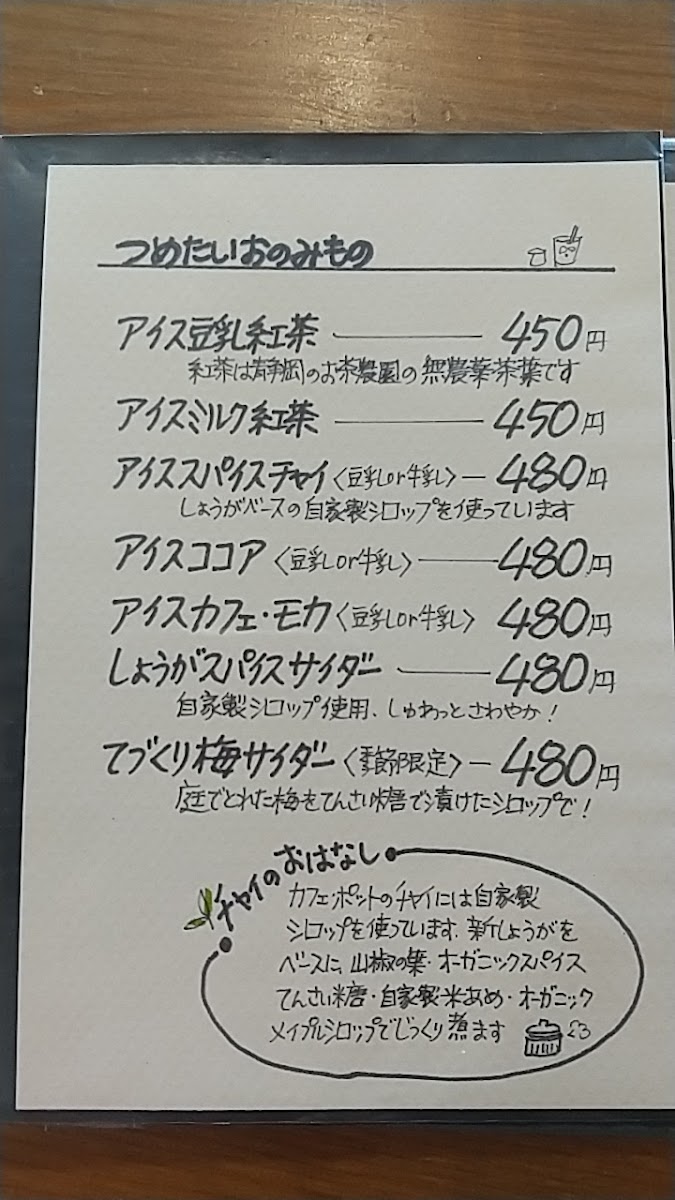 つめたいおのみもの
アイス豆乳紅茶 450円
紅茶は静岡のお茶農園の無農薬茶葉です
アイスミルク紅茶 450円
アイススパイスチャイ〈豆乳or牛乳〉 480円
しょうがベースの自家製シロップを使っています
アイスココア〈豆乳or牛乳〉 480円
アイスカフェ・モカ〈豆乳or牛乳〉 480円
しょうがスパイスサイダー 480円
自家製シロップ使用、しゅわっとさわやか!
てづくり梅サイダー〈季節限定〉 480円
庭でとれた梅をてんさい糖で漬けたシロップで!
チャイのおはなし
カフェ・ポットのチャイには自家製
シロップを使っています。新しょうがを
ベースに、山椒の葉・オーガニックスパイス
てんさい糖・自家製米あめ・オーガニック
メイプルシロップでじっくり煮ます